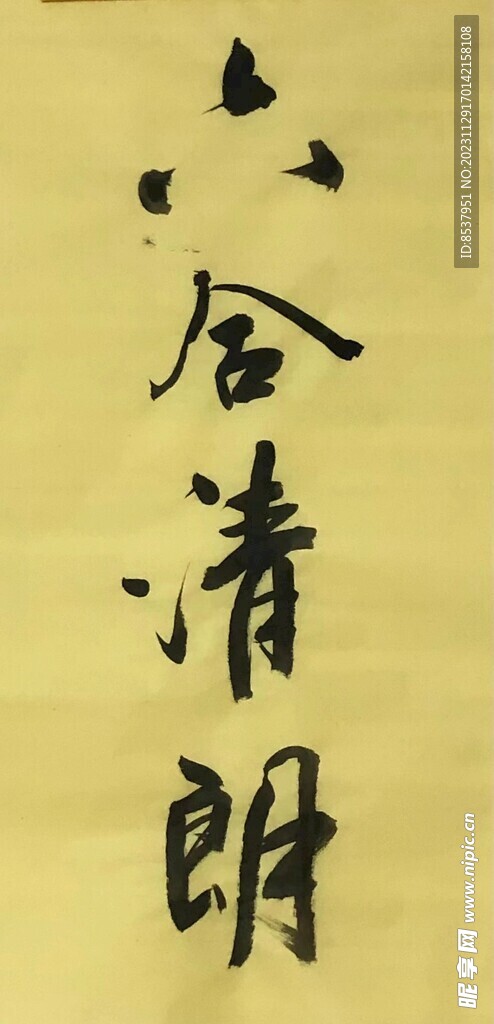 六合清朗
ID:8537951 NO:20231129170142158108
昵享网 www.nipic.cn